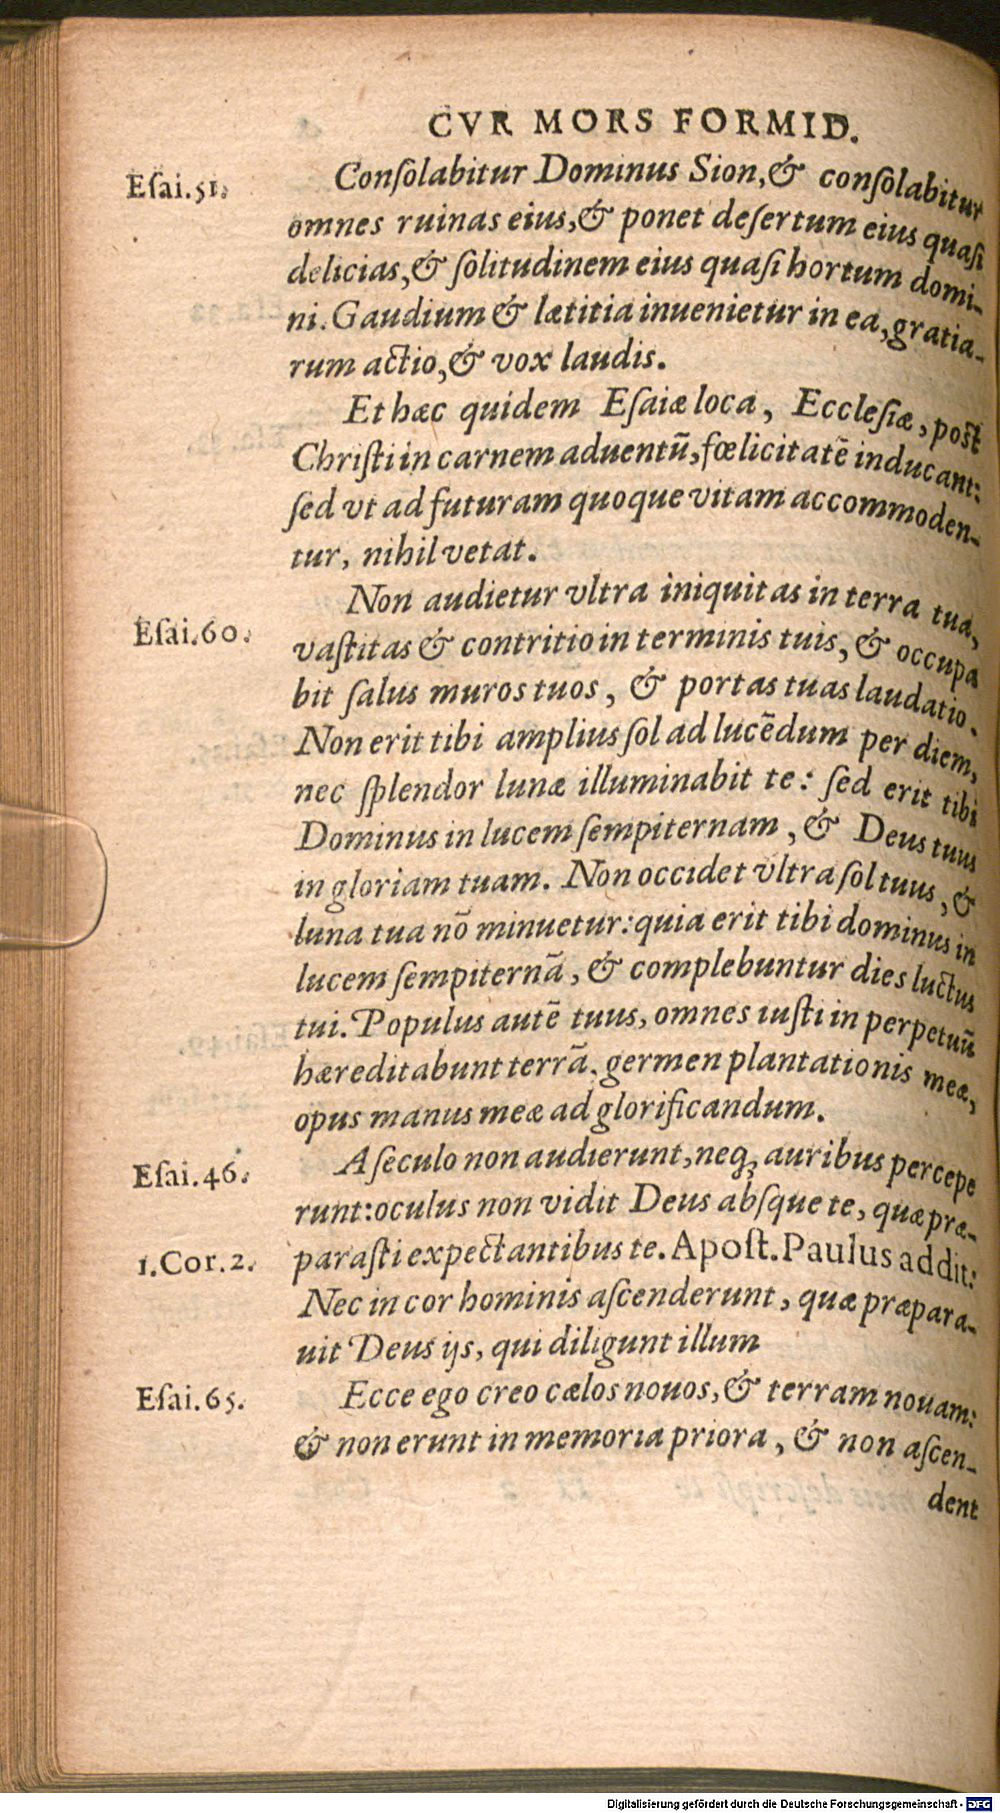 CVR MORS FORMID.
Eſai.51. Conſolabitur Dominus Sion, & conſolabitur
omnes ruinas eius, & ponet deſertum eius quaſi
delicias, & ſolitudinem eius quaſi hortum domi-
ni. Gaudium & lætitia inuenietur in ea, gratia-
rum actio, & vox laudis.
Et hæc quidem Eſaiæ loca, Eccleſiæ, poſt
Chriſti in carnem aduentũ, fœlicitatẽ inducant:
ſed vt ad futuram quoque vitam accommoden-
tur, nihil vetat.
Non audietur vltra iniquitas in terra tua,
Eſai.60. vaſtitas & contritio in terminis tuis, & occupa
bit ſalus muros tuos, & portas tuas laudatio.
Non erit tibi amplius ſol ad lucẽdum per diem,
nec ſplendor lunæ illuminabit te: ſed erit tibi
Dominus in lucem ſempiternam, & Deus tuus
in gloriam tuam. Non occidet vltra ſol tuus, &
luna tua nõ minuetur: quia erit tibi dominus in
lucem ſempiternã, & complebuntur dies luctus
tui. Populus autẽ tuus, omnes iuſti in perpetuũ
hæreditabunt terrã. germen plantationis meæ,
opus manus meæ ad glorificandum.
Eſai.46. A ſeculo non audierunt, neq; auribus percepe
runt: oculus non vidit Deus abſque te, quæ præ-
1.Cor.2. paraſti expectantibus te. Apoſt. Paulus addit:
Nec in cor hominis aſcenderunt, quæ præpara-
uit Deus ijs, qui diligunt illum
Eſai.65. Ecce ego creo cælos nouos, & terram nouam:
& non erunt in memoria priora, & non aſcen-
dent
Digitalisierung gefördert durch die Deutsche Forschungsgemeinschaft - DFG